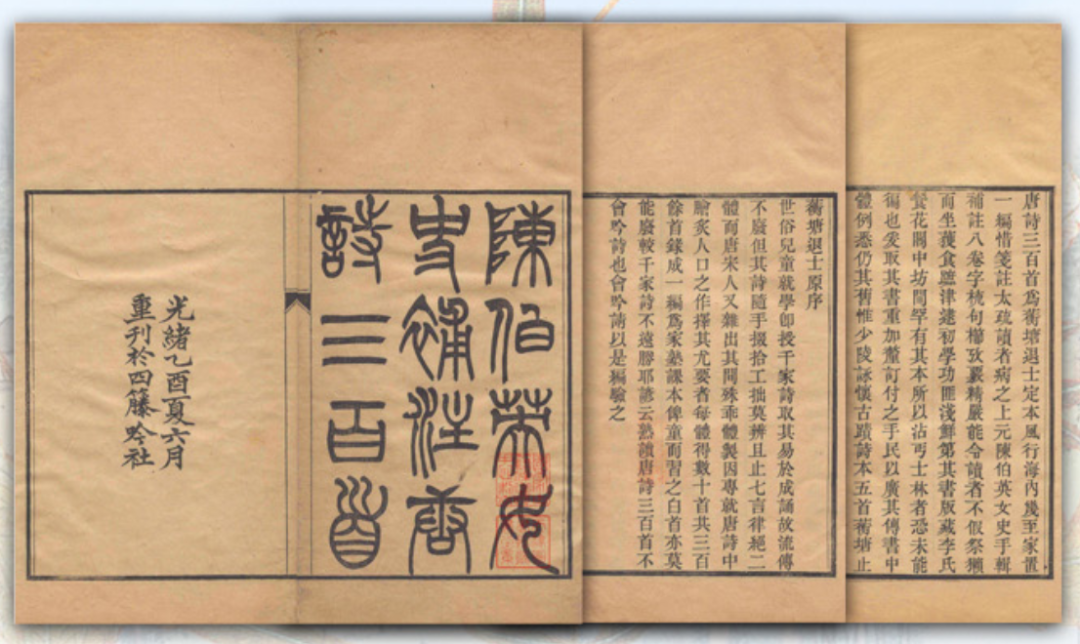 陳伯英女
史補注唐
詩三百首
光緒乙酉夏六月
重刊於四籐吟社
蘅塘退士原序
世俗兒童就學卽授千家詩取其易於成誦故流傳
不廢但其詩隨手掇拾工拙莫辨且止七言律絕二
體而唐宋人又雜出其間殊乖體製因專就唐詩中
膾炙人口之作擇其尤要者每體得數十首共三百
餘首錄成一編爲家塾課本俾童而習之白首亦莫
能廢較千家詩不遠勝耶諺云熟讀唐詩三百首不
會吟詩也會吟請以是編驗之
唐詩三百首爲蘅塘退士定本風行海內幾至家置
一編惜箋註太疏讀者病之上元陳伯英女史手輯
補註八卷字梳句櫛攷覈精嚴能令讀者不假祭獺
而坐獲食蹠津逮初學功匪淺鮮第其書版藏李氏
餐花閣中坊間罕有其本所以沾丐士林者恐未能
徧也爰取其書重加釐訂付之手民以廣其傳書中
體例悉仍其舊惟少陵詠懷古蹟詩本五首蘅塘止